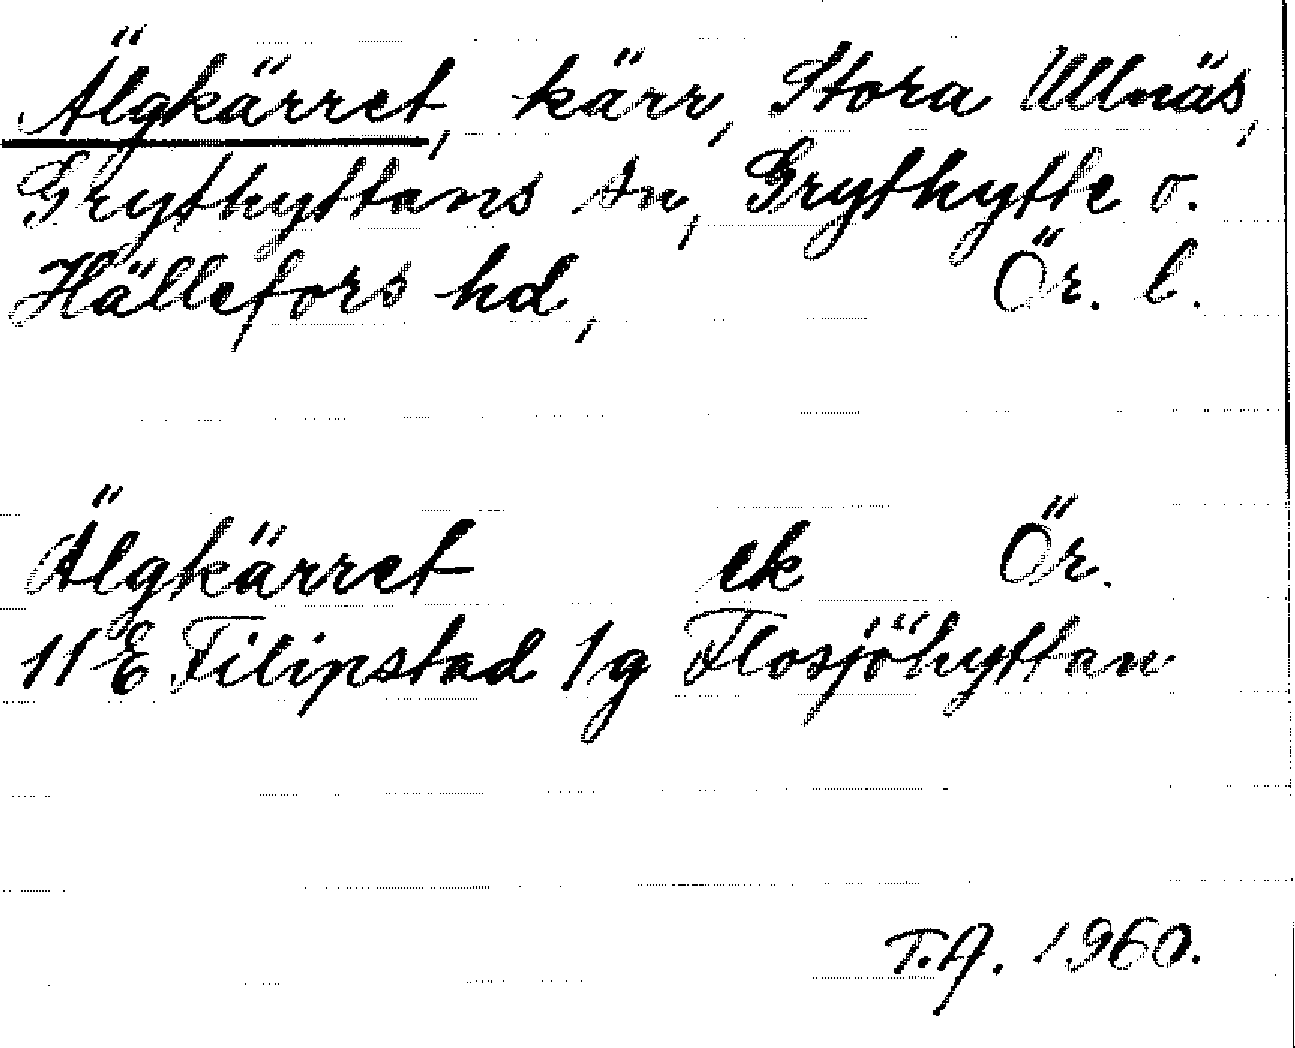 Älgkärret, kärr, Stora Ullnäs,
Grythyttans sn, Grythytte o.
Hällefors hd, Ör. l.
Älgkärret ek Ör.
11E Filipstad 1g Flosjöhyttan
T.A. 1960.